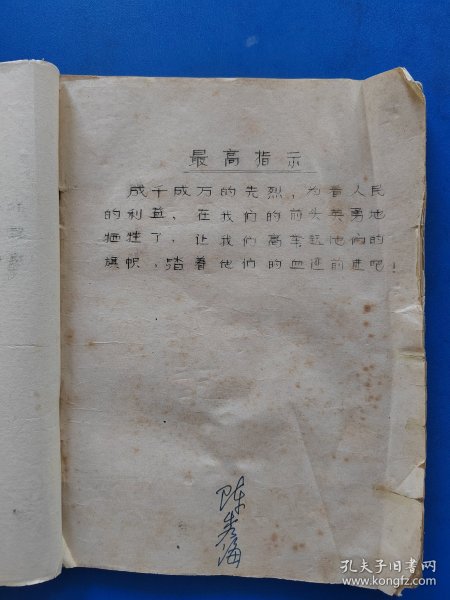 最高指示
成千成万的先烈，为着人民
的利益，在我们的前头英勇地
牺牲了，让我们高举起他们的
旗帜，踏着他们的血迹前进吧！
孔夫子旧书网
www.kongfz.com